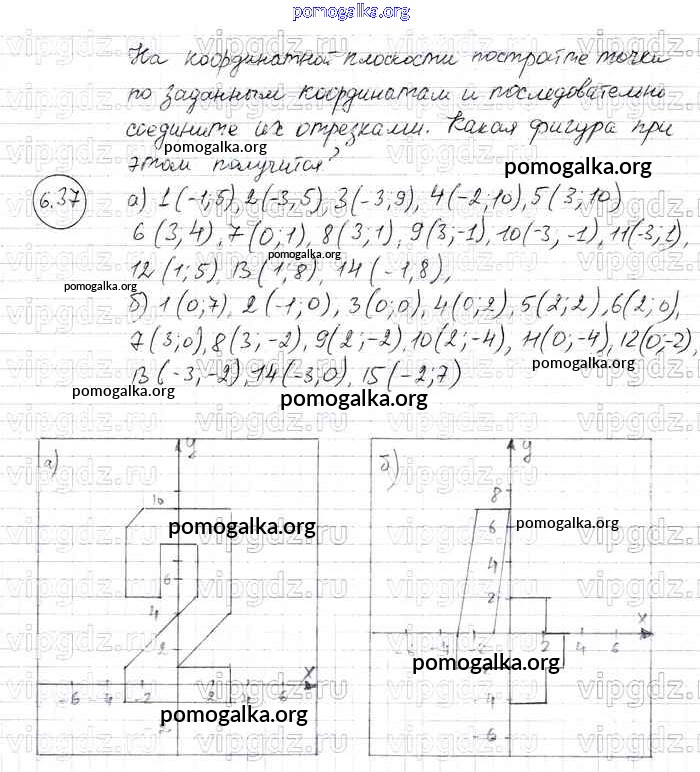 pomogalka.org
На координатной плоскости постройте точки
по заданным координатам и последовательно
соедините их отрезками. Какая фигура при
этом получится?
pomogalka.org
pomogalka.org
6.37
а) 1(-1;5), 2(-3,5), 3(-3,9), 4(-2,10), 5(3;10)
6(3,4), 7(0;1), 8(3;1), 9(3;-1), 10(-3,-1), 11(-3;1),
pomogalka.org
12(1;5), 13(1;8), 14(-1,8),
pomogalka.org
б) 1(0;7), 2(-1;0), 3(0;0), 4(0;2), 5(2;2), 6(2;0),
7(3;0), 8(3;-2), 9(2;-2), 10(2;-4), 11(0;-4), 12(0;-2),
pomogalka.org
13(-3;-2), 14(-3,0), 15(-2;7)
pomogalka.org
pomogalka.org
а)
y
10
pomogalka.org
6
4
2
x
-6 -4 -2 2 4 6
pomogalka.org
б)
y
8
6
pomogalka.org
4
2
x
-6 -4 -2 2 4 6
pomogalka.org
-4
-6
vipgdz.ru